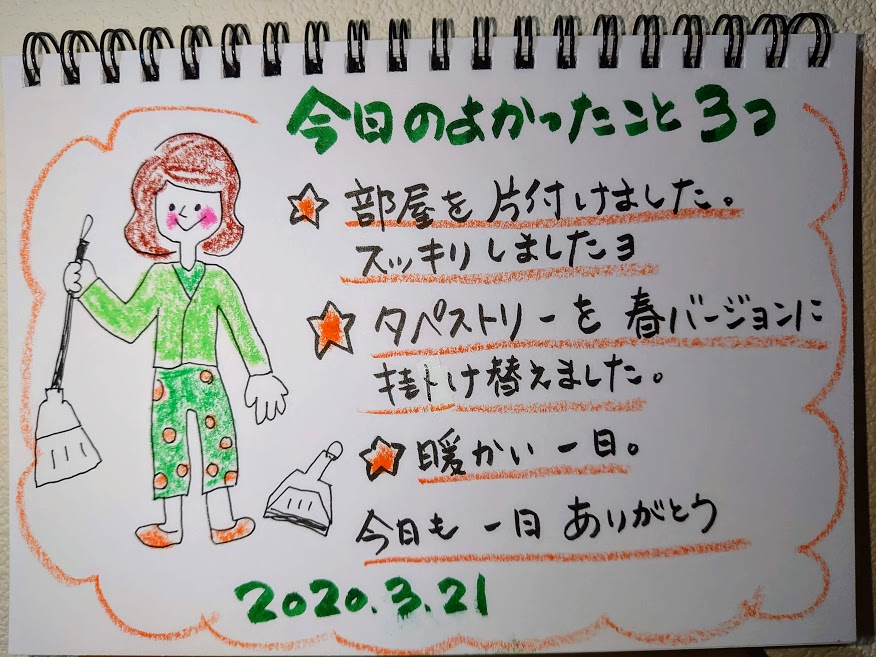 今日のよかったこと 3つ
部屋を片付けました。
スッキリしましたヨ
タペストリーを春バージョンに
掛け替えました。
暖かい一日。
今日も一日ありがとう
2020.3.21